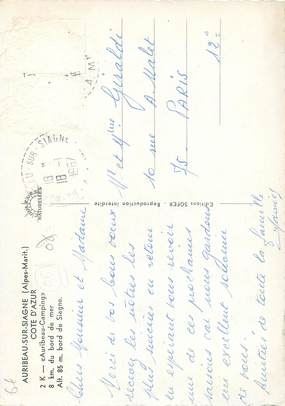 AURIBEAU-SUR-SIAGNE (Alpes-Marit.)
COTE D'AZUR
2 K — «Auribeau-Camping»
8 km. du bord de mer
Alt. 85 m. bord de Siagne.
Chers Monsieur et Madame
Merci de vos bons vœux
recevez les nôtres les
plus sincère en retour
en esperant vous revoir
un de ces prochains
car nous gardons
un excellent souvenir
de vous.
Amitiés de toute la famille
Editions SOFER - Reproduction interdite
SUR - SIAGNE
18 -1
1967
Mr et Mme Geraldi
10 rue A. Malet
75 - PARIS
12e